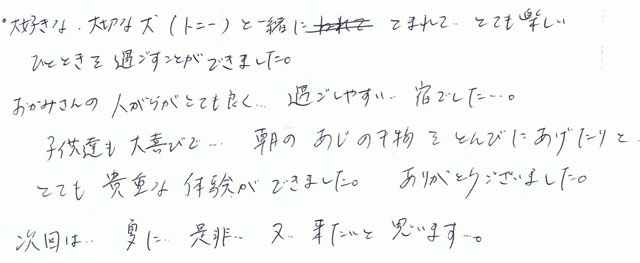 ・大好きな、大切な犬（トニー）と一緒に とまれて… とても楽しい
ひとときを過ごすことができました。
おかみさんの人がらがとても良く… 過ごしやすい… 宿でした…。
子供達も大喜びで… 朝のあじの干物をとんびにあげたりと
とても貴重な体験ができました。 ありがとうございました。
次回は… 夏に… 是非… 又… 来たいと思います…。